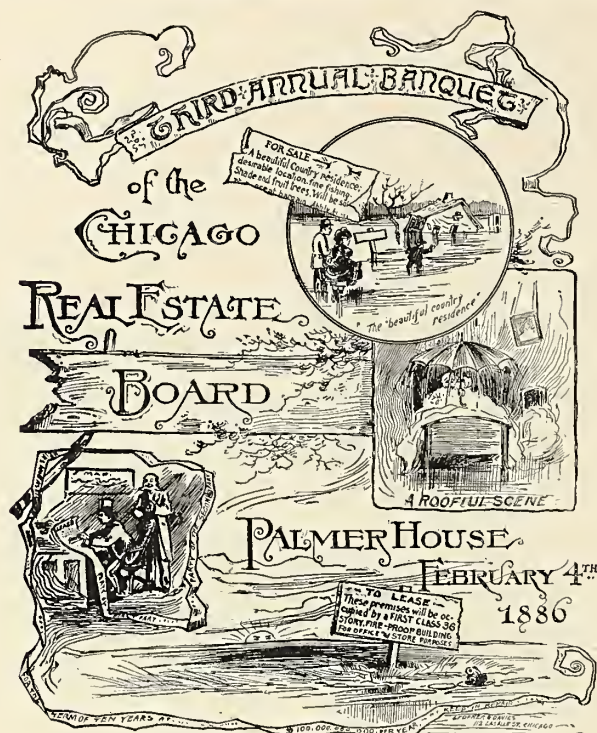 THIRD·ANNUAL·BANQUET
of the
CHICAGO
REAL ESTATE
BOARD
FOR SALE
A beautiful Country residence;
desirable location. fine fishing
Shade and fruit trees. Will be
The "beautiful country
residence"
A ROOFFUL SCENE
PALMER HOUSE
FEBRUARY 4TH
1886
TO LEASE
These premises will be oc-
cupied by a FIRST CLASS 36
STORY, FIRE-PROOF BUILDING
FOR OFFICE & STORE PURPOSES
TERM OF TEN YEARS AT
$100.000.000.000. PER YEAR
LASALLE ST. CHICAGO